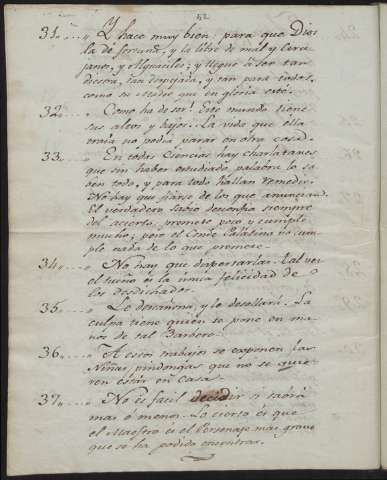 52
31..... „ Y hace muy bien para que Dios
la dé fortuna, y la libre de mal y Ciru
janos, y Alguaciles; y llegue á ser tan
diestra, tan despejada, y tan para todos,
como su Madre que en gloria esté.
32..... „ Como ha de ser! Este mundo tiene
sus altos y bajos. La vida que ella
traía no podia parar en otra cosa.
33..... „ En todas Ciencias hay charlatanes
que sin haber estudiado palabra lo sa
ben todo, y para todo hallan remedio.
No hay que fiarse de lo que anuncian.
El verdadero sabio desconfia siempre
del acierto: promete poco y cumple
mucho; pero el Conde Palatino no cum
ple nada de lo que promete.
34..... „ No hay que dispertarla. Tal vez
el sueño es la única felicidad de
los desdichados.
35..... „ Le descañona, y le desollará. La
culpa tiene quien se pone en ma
nos de tal Barbero.
36..... „ A esos trabajos se exponen las
Niñas pindongas que no se quie
ren estár en casa.
37..... „ No es facil decidir si sabrá
mas ó menos. Lo cierto es que
el Maestro es el Personaje mas grave
que se ha podido encontrar.